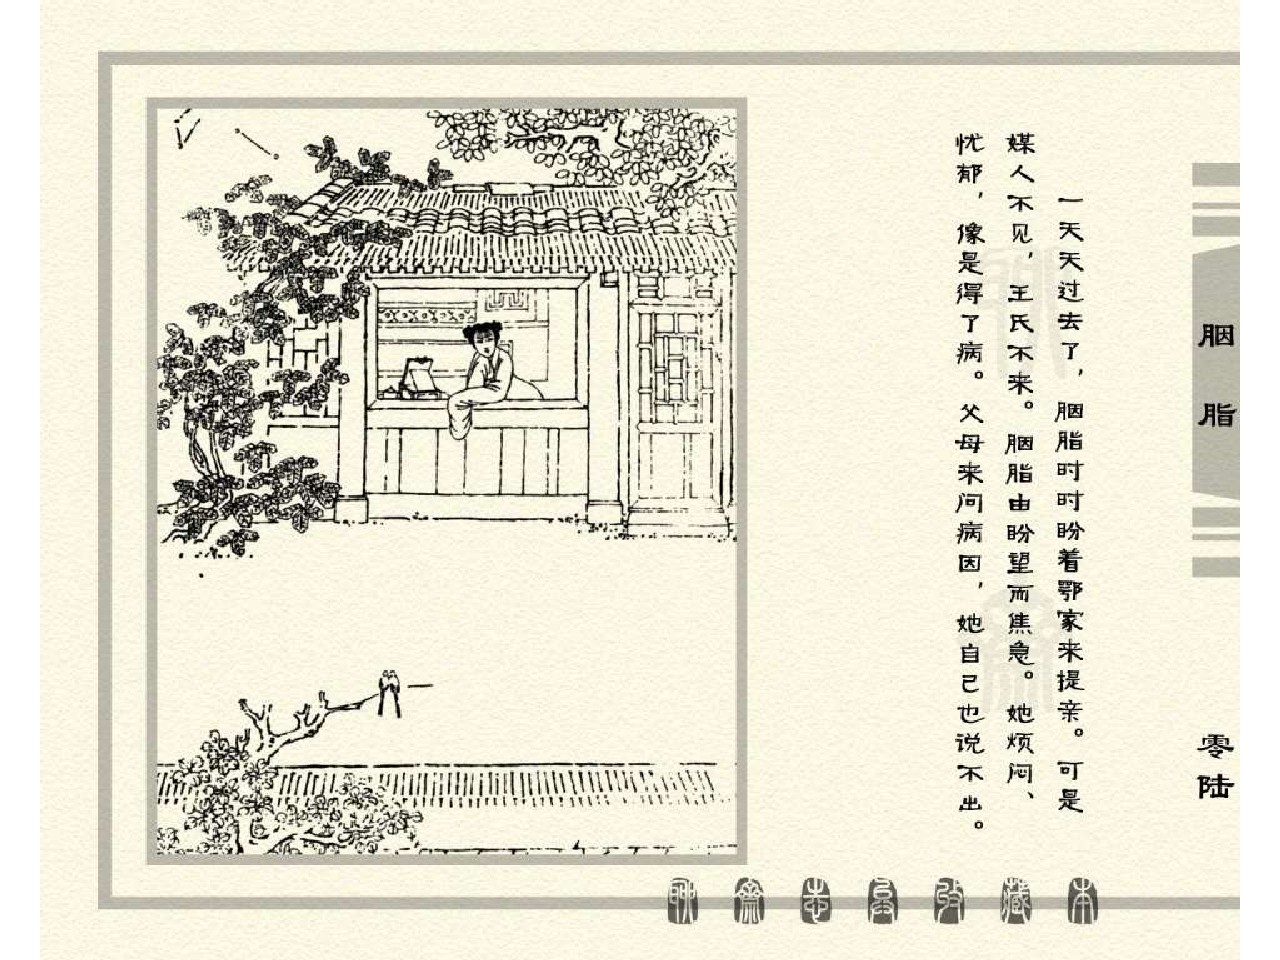 一天天过去了，胭脂时时盼着鄂家来提亲。可是
媒人不见，王氏不来。胭脂由盼望而焦急。她烦闷、
忧郁，像是得了病。父母来问病因，她自己也说不出。
胭脂
零陆
聊斋志异收藏本